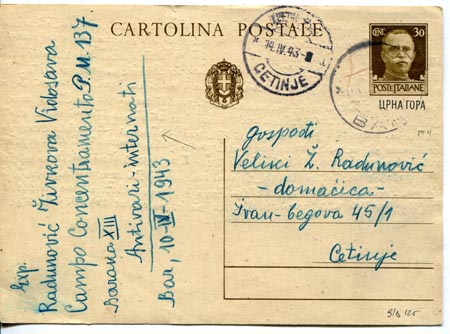 CARTOLINA POSTALE
CENT. 30
POSTE ITALIANE
ЦРНА ГОРА
14.IV.43-8
CETINJE
gospođi
Veliki Ž. Radunović
-domaćica-
Ivan-begova 45/1
Cetinje
Esp.
Radunović Živkova Vidosava
Campo Concentramento P.M. 137
Barana XIII
Antivari-internati
Bar, 10-IV-1943